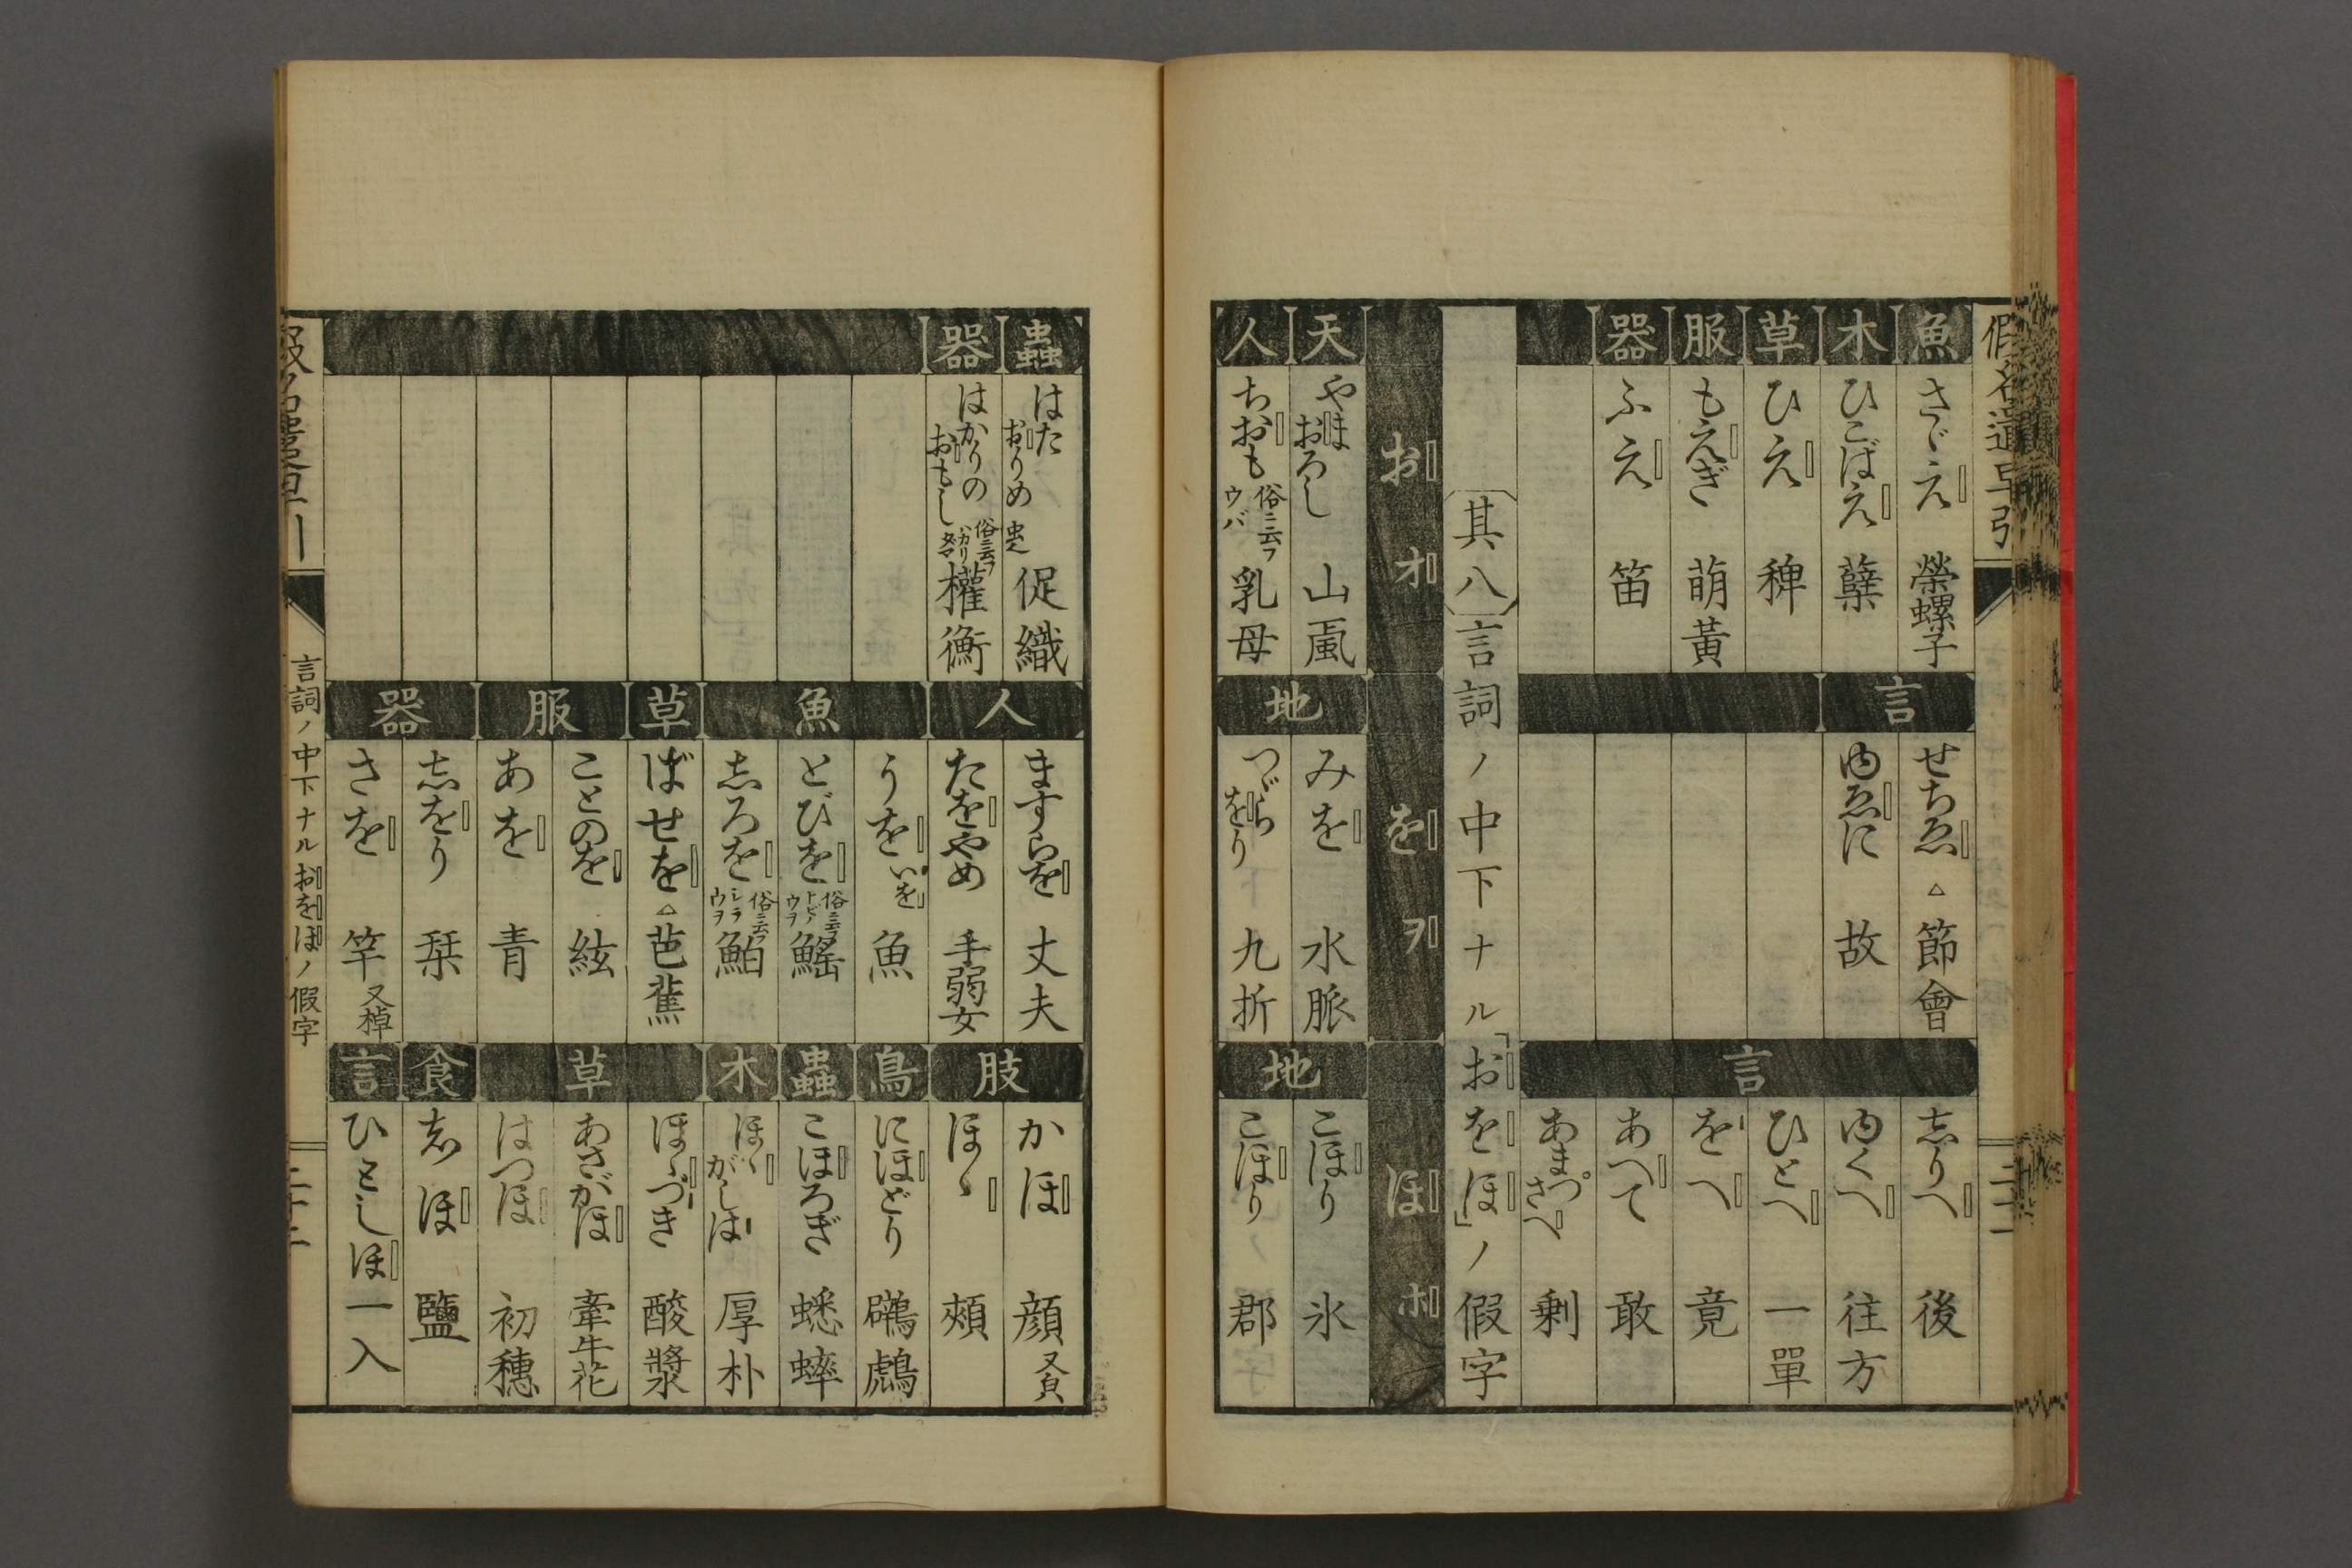 假名遣早引
魚 さゞえ 榮螺子
木 ひこばえ 蘖
草 ひえ 稗
服 もえぎ 萌黃
器 ふえ 笛
言
せちゑ △ 節會
ゆゑに 故
言
志りへ 後
ゆくへ 往方
ひとへ 一單
をへ 竟
あへて 敢
あまつさへ 剰
其八 言詞ノ中下ナル「おをほ」ノ假字
お オ
を ヲ
ほ ホ
天 やまおろし 山風
人 ちおも 俗ニ云フウバ 乳母
地
みを 水脈
つゞらをり 九折
地
こほり 氷
こほり 郡
蟲 はたおりめ 虫 促織
器 はかりのおもし 俗ニ云フハカリノタマ 權衡
人
ますらを 丈夫
たをやめ 手弱女
魚
うを いを 魚
とびを 俗ニ云フトビノウヲ 鰩
志ろを 俗ニ云フシラウヲ 鮊
草
ばせを △ 芭蕉
服
ことのを 絃
あを 青
器
志をり 栞
さを 竿 又棹
肢
かほ 顔 又㒵
ほゝ 頰
鳥 にほどり 鸊鷉
蟲 こほろぎ 蟋蟀
木 ほゝがしは 厚朴
草
ほゝづき 酸漿
あさがほ 牽牛花
はつほ 初穗
食 志ほ 鹽
言 ひとしほ 一入
言詞ノ中下ナルおをほノ假字
二十二